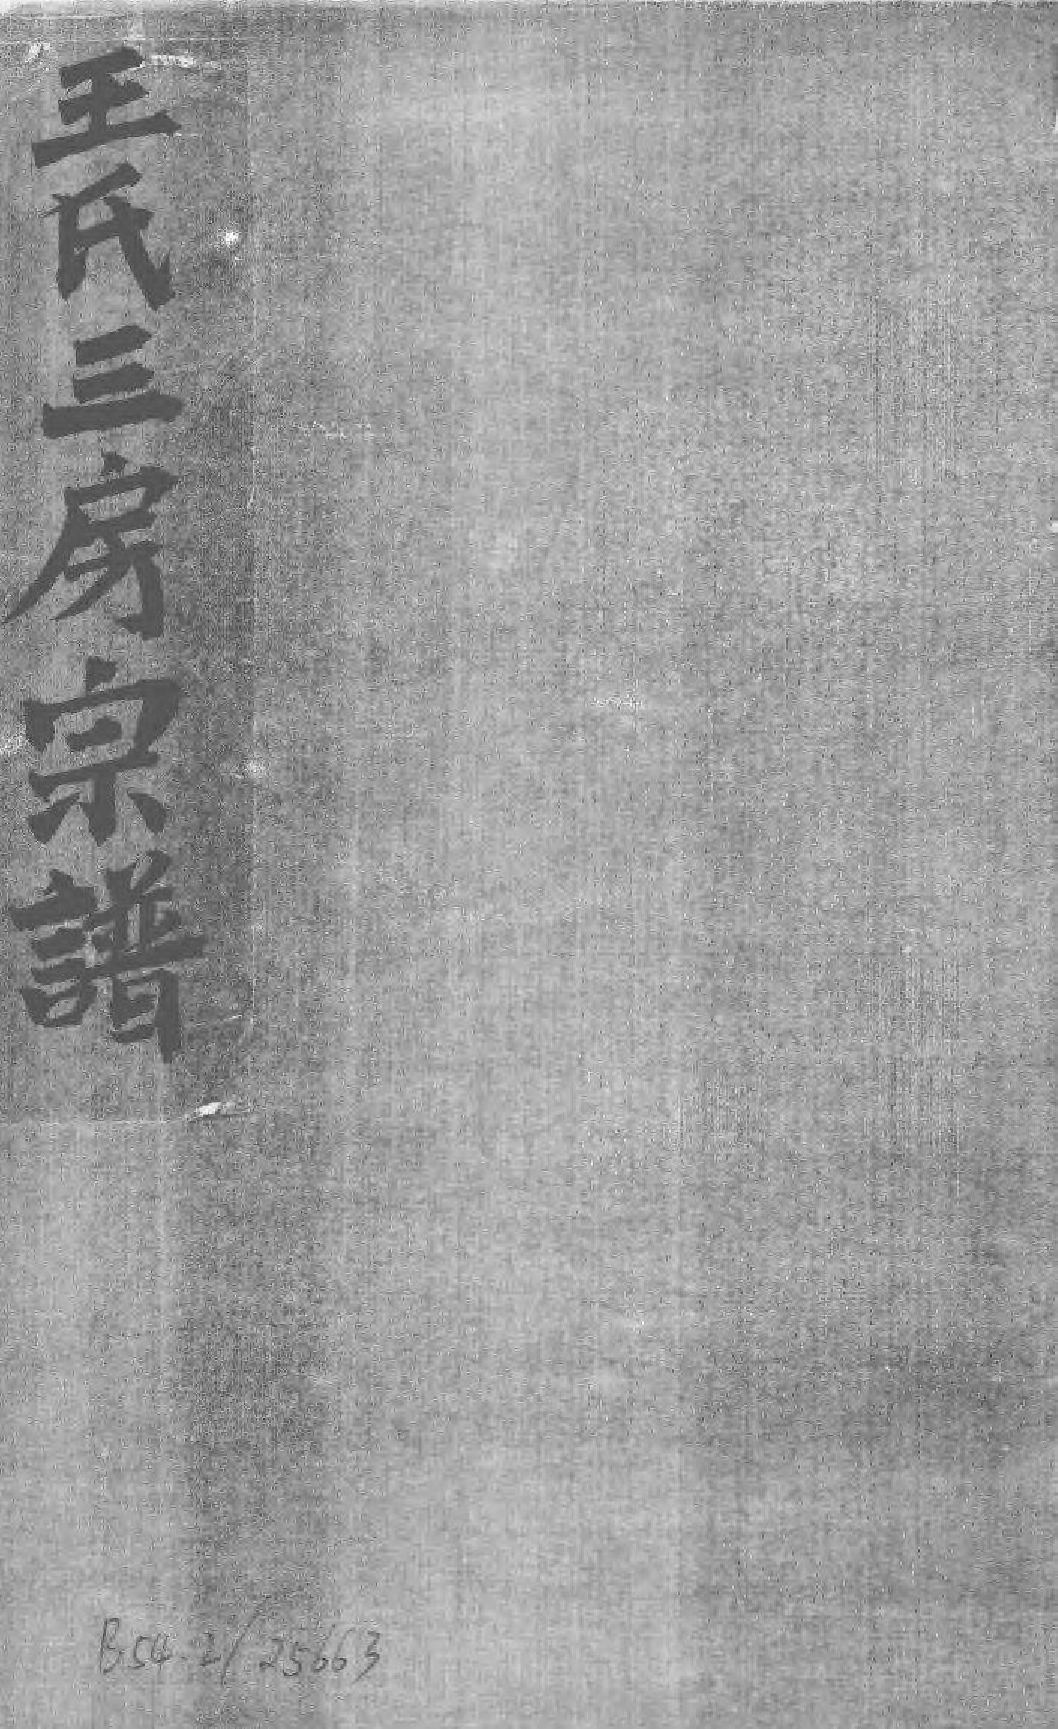 王氏三房宗譜
B54.2/25663